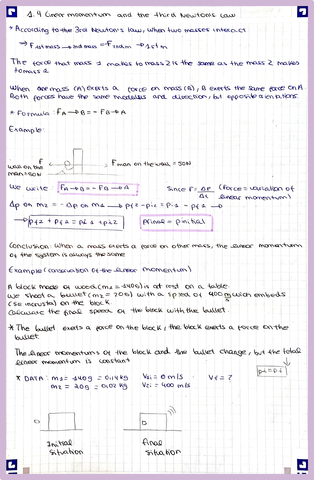 1.4 Linear momentum and the third Newton's law
* According to the 3rd Newton's law, when two masses interact
→ F 1st mass → 2nd mass = - F 2nd m → 1st m
The force that mass 1 makes to mass 2 is the same as the mass 2 makes
to mass 1.
When one mass (A) exerts a force on mass (B), B exerts the same force on A
Both forces have the same modulus and direction, but opposite orientations
* Formula: FA→B = - FB→A
Example:
F wall on the man = 50N
F man on the wall = 50N
We write FA→B = - FB→A Since F = Δp/Δt (Force = variation of linear momentum)
Δp on m2 = - Δp on m1 → pf2 - pi2 = pi1 - pf1 →
→ pf1 + pf2 = pi1 + pi2 pfinal = pinitial
Conclusion: When a mass exerts a force on other mass, the linear momentum
of the system is always the same
Example (conservation of the linear momentum)
A block made of wood (m1 = 140g) is at rest on a table
We shoot a bullet (m2 = 20g) with a speed of 400 m/s which embeds
(se incrusta) on the block
Calculate the final speed of the block with the bullet.
* The bullet exerts a force on the block, the block exerts a force on the
bullet.
The linear momentums of the block and the bullet change, but the total
linear momentum is constant
pi = pf
* DATA: m1 = 140g = 0,14 kg V1i = 0 m/s Vf = ?
m2 = 20g = 0,02 kg V2i = 400 m/s
Initial situation
Final situation